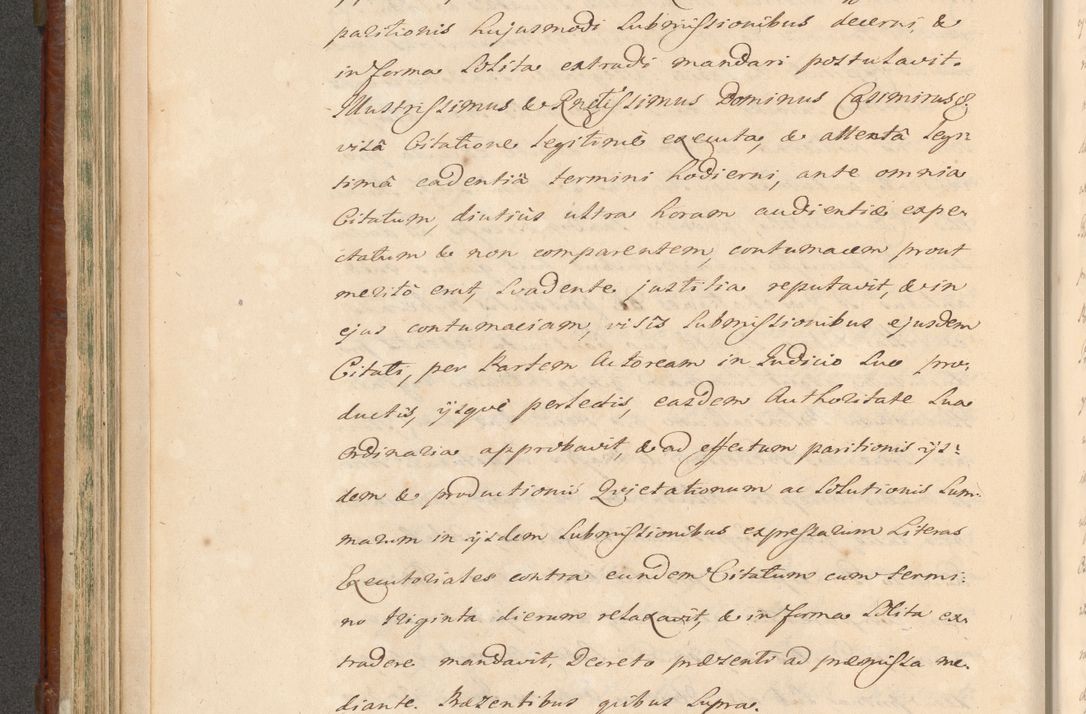 paritionis hujusmodi Submissionibus decerni, &
in forma solita extradi mandari postulavit.
Illustrissimus & Rndissimus Dominus Casimirus &
visâ Citatione legitimè executa, & attentâ legi
timâ cadentiâ termini hodierni, ante omnia
Citatum, diutiùs ultra horam audientiæ expe-
ctatum & non comparentem, contumacem prout
meritò erat, svadente justitia reputavit, & in
ejus contumaciam, visis Submissionibus ejusdem
Citati, per Partem Actoream in Judicio suo pro-
ductis, ijsquè perlectis, easdem Authoritate sua
ordinaria approbavit, & ad effectum paritionis ijs-
dem & productionis Qvietationum ac solutionis Sum-
marum in ijsdem Submissionibus expressarum Literas
Executoriales contra eundem Citatum cum termi-
no triginta dierum relaxavit, & in forma solita ex-
tradere mandavit, Decreto præsenti ad præmissa me-
diante. Præsentibus qvibus supra.